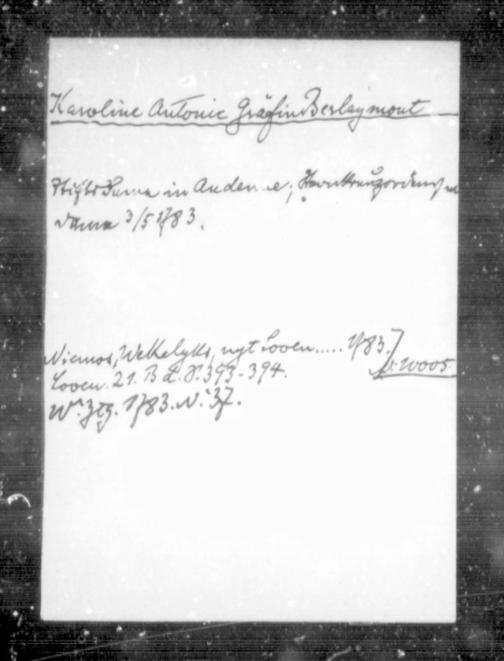 Karoline Antonie Gräfin Berlaymont
Stiftsdame in Andenne; Sternkreuzordens
dame 3/5 1783.
Niewos, Wekelyks, uyt Loven..... 1783.
Loven. 21. Bd. S. 393-394.
W. Ztg. 1783. N: 37.